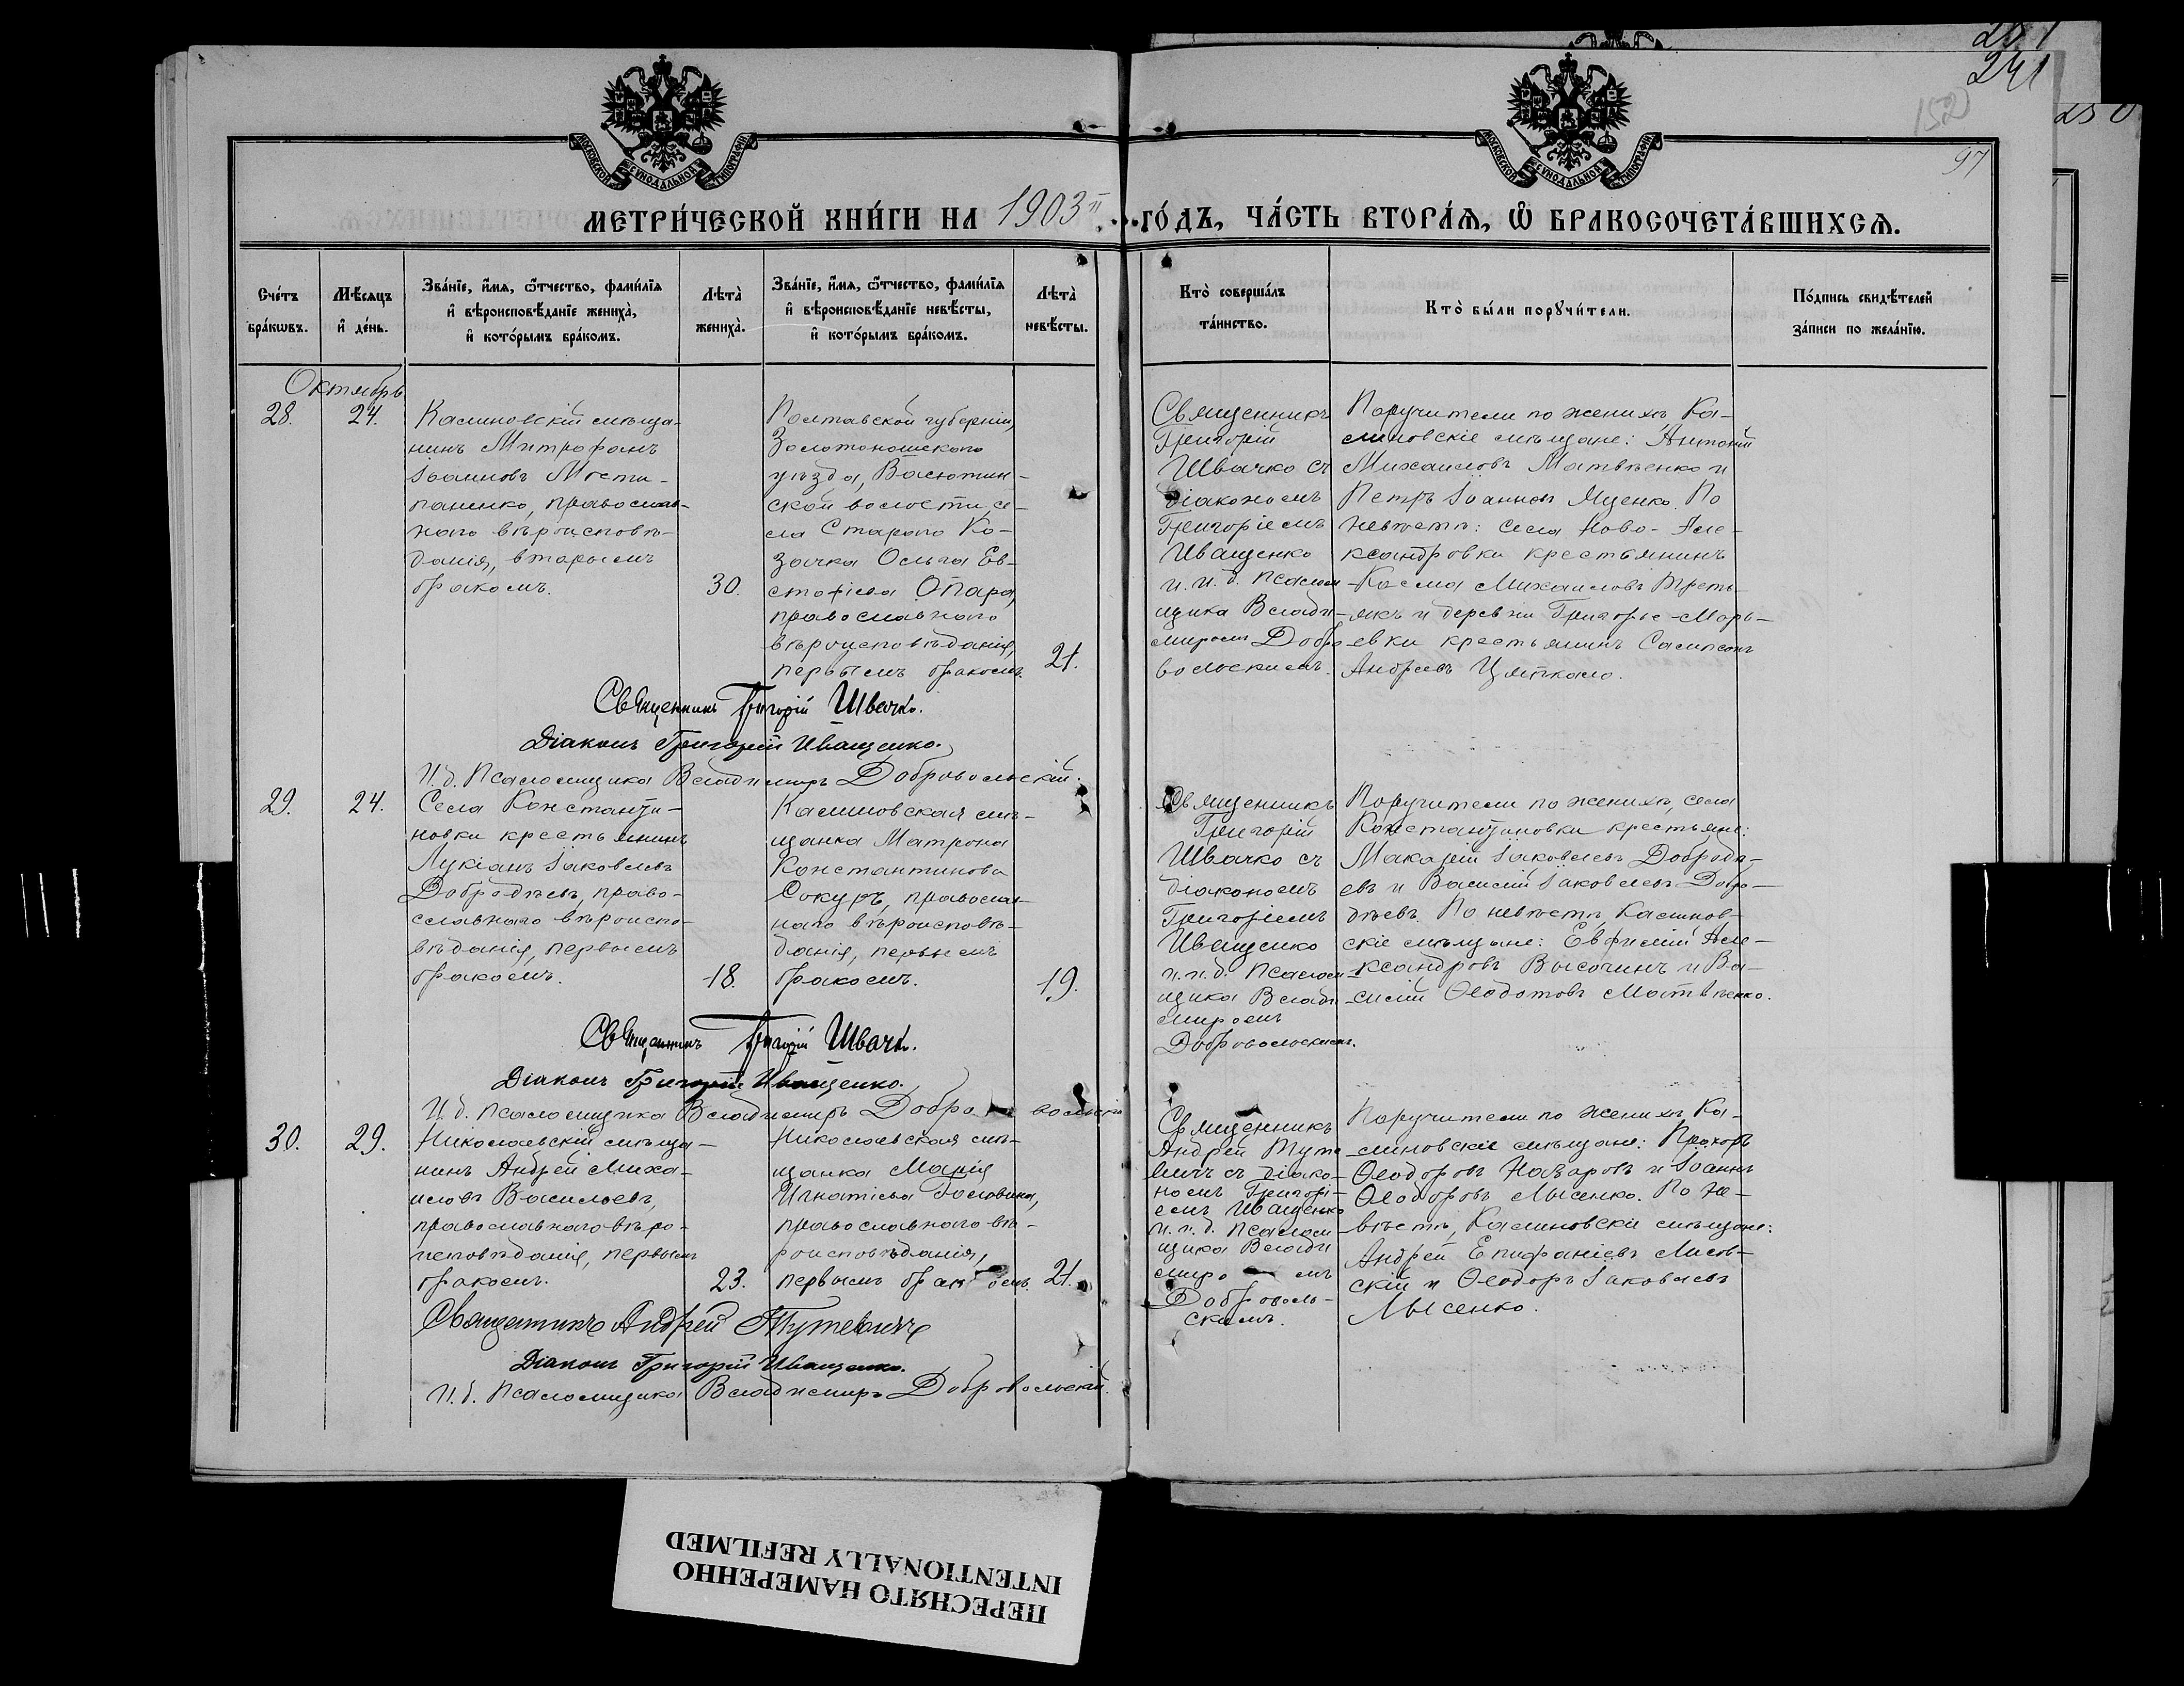 281
241
250
152
97
МОСКОВСКОЙ СУНОДАЛЬНОЙ ТИПОГРАФІИ
МОСКОВСКОЙ СУНОДАЛЬНОЙ ТИПОГРАФІИ
МЕТРИ́ЧЕСКОЙ КНИ́ГИ НА 1903й ГО́ДЪ, ЧА́СТЬ ВТОРА́Я, Ѽ БРАКОСОЧЕТА́ВШИХСЯ.
Сче́тъ бра́кѡвъ.
Мѣ́сяцъ и҆ де́нь.
Зва́нїе, и҆́мя, ѻ҆́тчество, фами́лїя и҆ вѣроисповѣ́данїе жениха̀, и҆ кото́рымъ бра́комъ.
Лѣта̀ жениха̀.
Зва́нїе, и҆́мя, ѻ҆́тчество, фами́лїя и҆ вѣроисповѣ́данїе невѣ́сты, и҆ кото́рымъ бра́комъ.
Лѣта̀ невѣ́сты.
Кто̀ соверша́лъ та́инство.
Кто̀ бы́ли порꙋчи́тели.
По́дпись свидѣ́телей за́писи по жела́нїю.
Октябрь
28.
24.
Калиновскій мѣща-
нинъ Митрофанъ
Іоанновъ Мости-
паненко, православ-
наго вѣроисповѣ-
данія, вторымъ
бракомъ.
30.
Полтавской губерніи,
Золотоношскаго
уѣзда, Васютин-
ской волости, се-
ла Стараго Ко-
зачка Ольга Ев-
стафіева Опара,
православнаго
вѣроисповѣданія,
первымъ бракомъ.
21.
Священникъ
Григорій
Швачко съ
діакономъ
Григоріемъ
Иващенко
и и. д. псалом-
щика Влади-
міромъ Добро-
вольскимъ.
Поручители по женихѣ, Ка-
линовскіе мѣщане: Антоній
Михаиловъ Матвѣенко и
Петръ Іоанновъ Яценко. По
невѣстѣ: села Ново-Але-
ксандровки крестьянинъ
Косма Михаиловъ Треть-
якъ и деревни Григорье-Марь-
евки крестьянинъ Сампсонъ
Андреевъ Цяпкало.
Священникъ Григорій Швачко.
Діаконъ Григорій Иващенко.
И. д. Псаломщика Владиміръ Добровольскій.
29.
24.
Села Константи-
новки крестьянинъ
Лукіанъ Іаковлевъ
Добродѣевъ, право-
славнаго вѣроиспо-
вѣданія, первымъ
бракомъ.
18.
Калиновская мѣ-
щанка Матрона
Константинова
Сокуръ, православ-
наго вѣроисповѣ-
данія, первымъ
бракомъ.
19.
Священникъ
Григорій
Швачко съ
діакономъ
Григоріемъ
Иващенко
и и. д. псалом-
щика Влади-
міромъ
Добровольскимъ.
Поручители по женихѣ, села
Константиновки крестьяне:
Макарій Іаковлевъ Добродѣ-
евъ и Василій Іаковлевъ Добро-
дѣевъ. По невѣстѣ, Калинов-
скіе мѣщане: Евфимій Але-
ксандровъ Высочинъ и Ва-
силій Ѳеодотовъ Матвѣенко.
Священникъ Григорій Швачко.
Діаконъ Григорій Иващенко.
И. д. псаломщика Владиміръ Добровольскій
30.
29.
Николаевскій мѣща-
нинъ Андрей Миха-
иловъ Васильевъ,
православнаго вѣро-
исповѣданія, первымъ
бракомъ.
23.
Николаевская мѣ-
щанка Марія
Игнатіева Головина,
православнаго вѣ-
роисповѣданія,
первымъ бракомъ.
21.
Священникъ
Андрей Туте-
вичъ съ діако-
номъ Григорі-
емъ Иващенко
и и. д. псалом-
щика Влади-
міромъ
Доброволь-
скимъ.
Поручители по женихѣ, Ка-
линовскіе мѣщане: Прохоръ
Ѳеодоровъ Назаровъ и Іоаннъ
Ѳеодоровъ Лысенко. По не-
вѣстѣ, Калиновскіе мѣщане:
Андрей Епифаніевъ Лисов-
скій и Ѳеодоръ Іаковлевъ
Лысенко.
Священникъ Андрей Тутевичъ
Діаконъ Григорій Иващенко.
И. д. Псаломщика Владиміръ Добровольскій.
ПЕРЕСНЯТО НАМЕРЕННО
INTENTIONALLY REFILMED